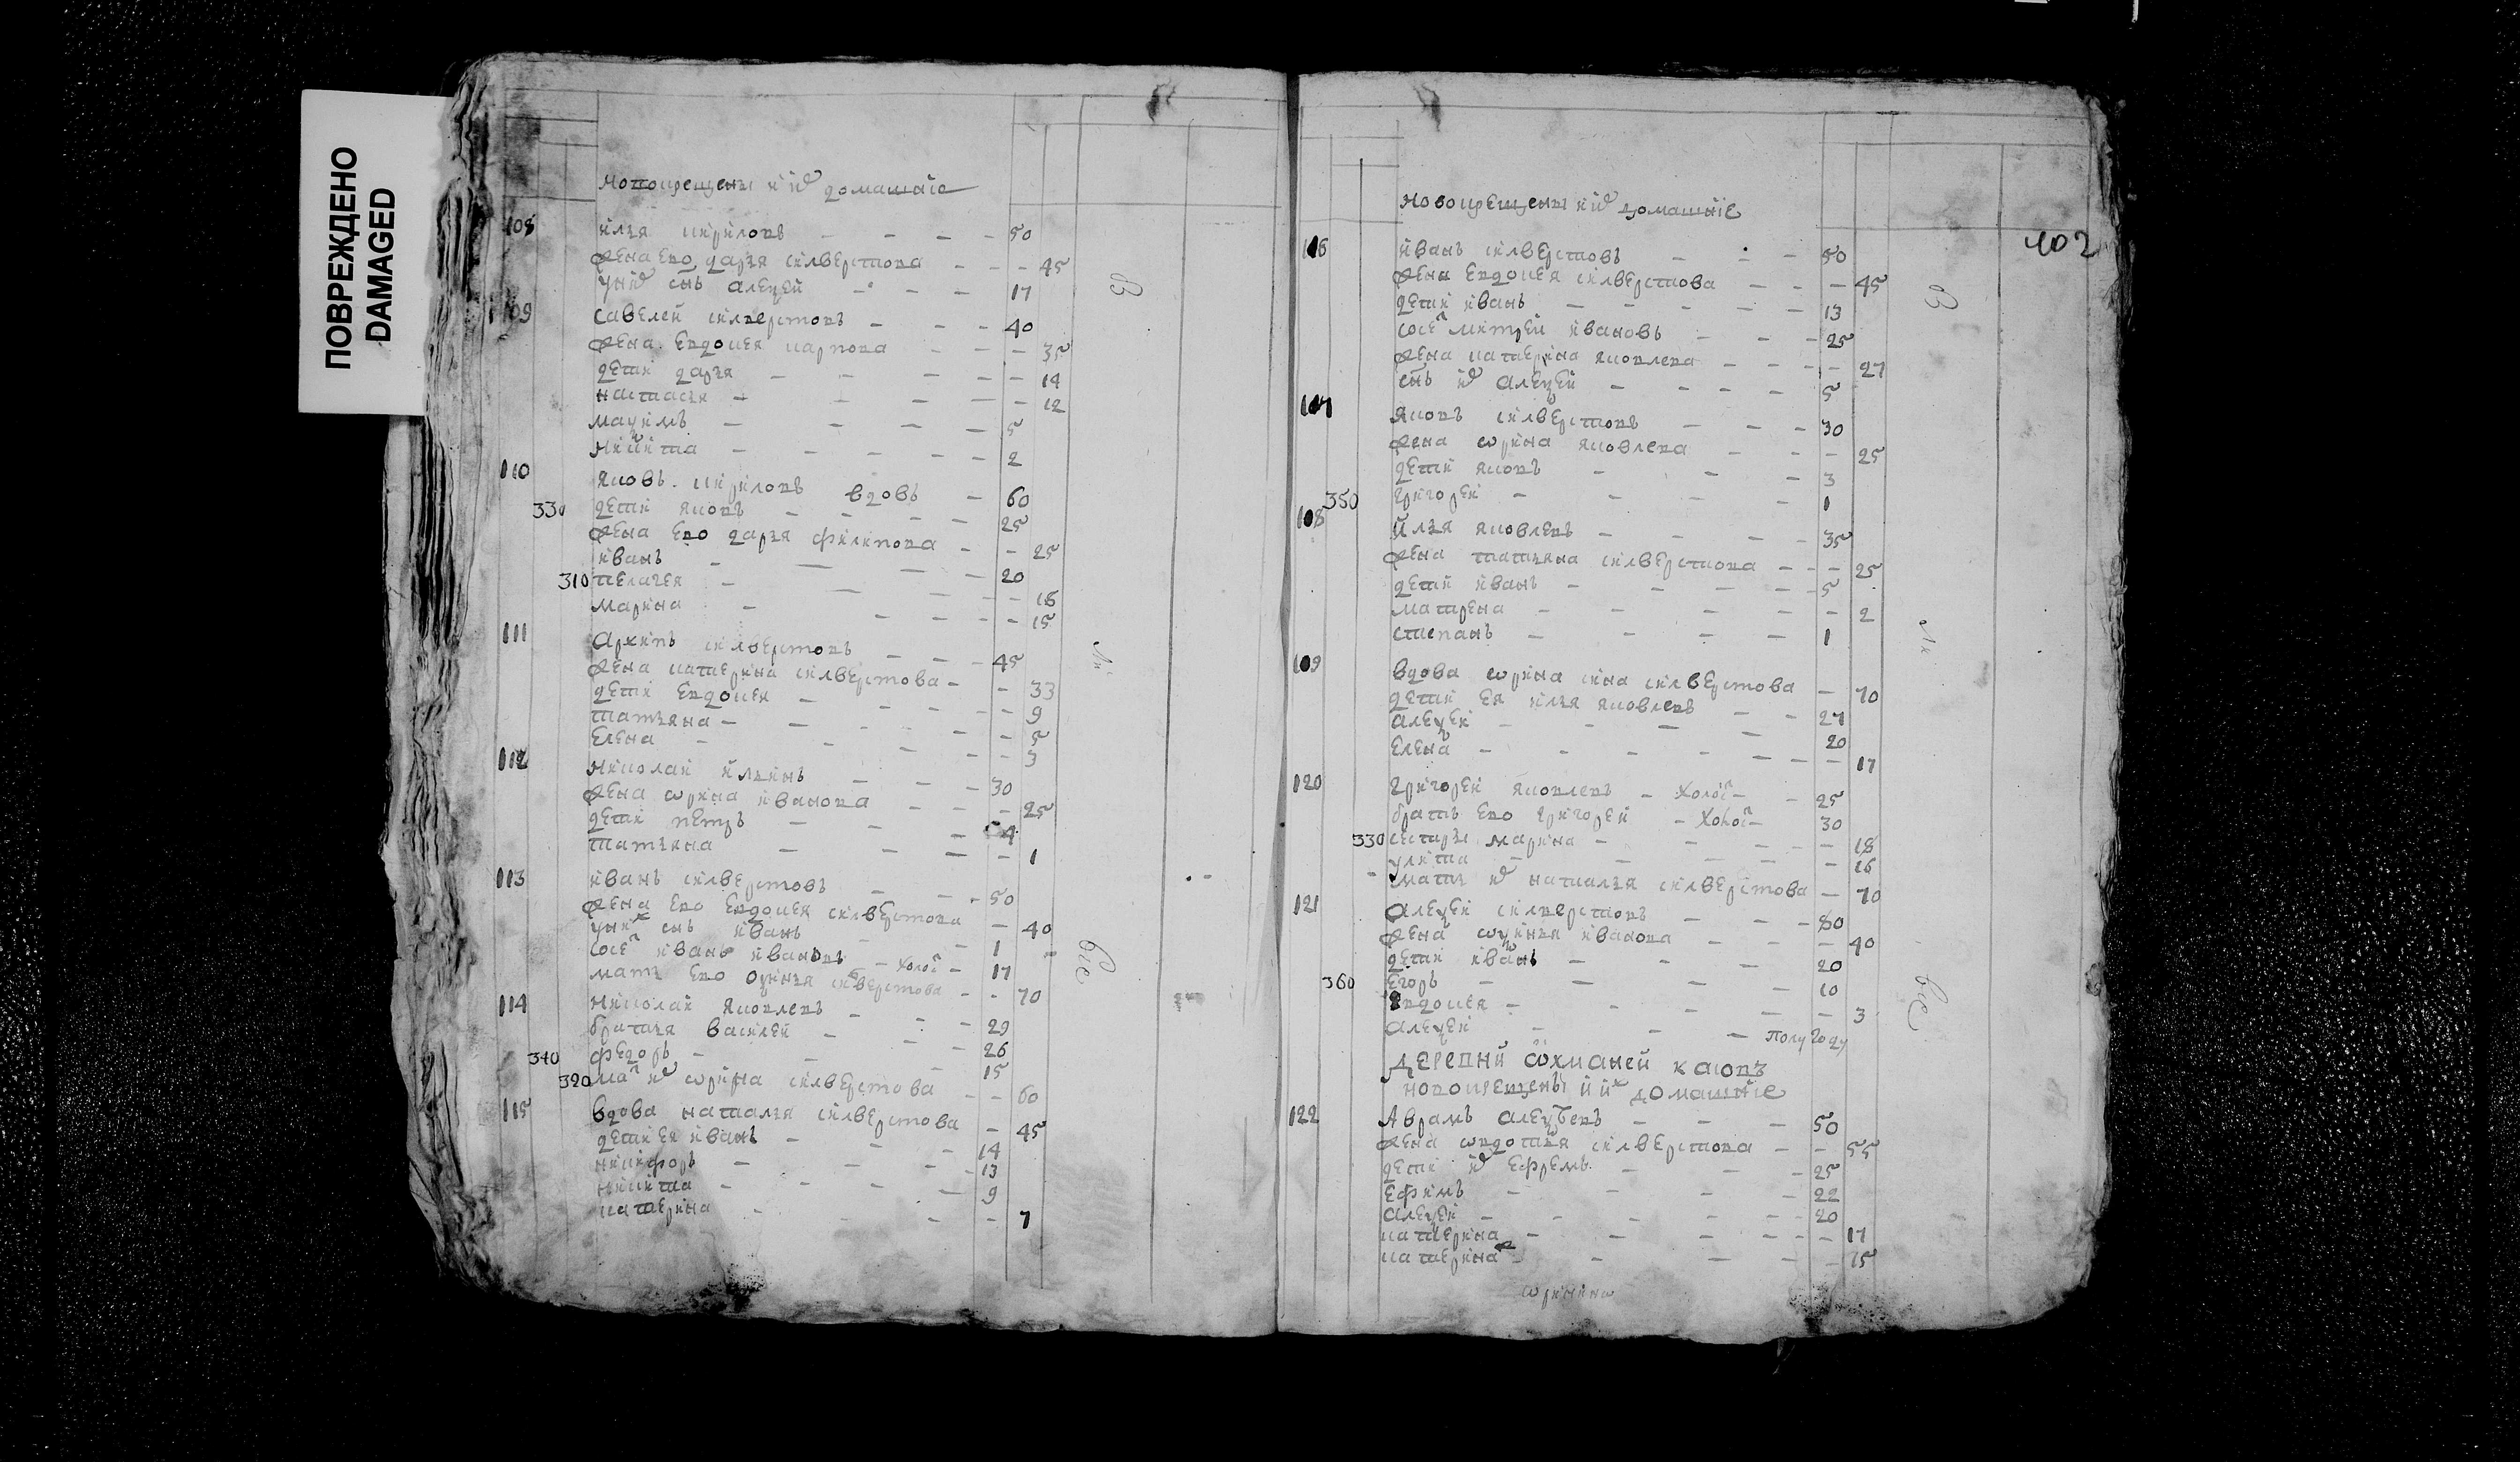 ПОВРЕЖДЕНО
DAMAGED
новокрещены и их домашние
108 илья кириловъ 50
жена ево дарья силверстова 45
у них снъ алеѯей 17
109 савелей силверстовъ 40
жена евдокея карпова 35
дети дарья 14
настасья 12
маѯимъ 5
никита 2
110 яковъ кириловъ вдовъ 60
330 дети яковъ 25
жена ево дарья филипова 25
иванъ 20
310 пелагея 18
марина 15
111 архипъ силверстовъ 45
жена катерина силверстова 33
дети евдокея 9
татьяна 5
елена 3
112 николай ильинъ 30
жена ѡрина иванова 25
дети петръ 4
татьяна 1
113 иванъ силверстовъ 50
жена ево евдокея силверстова 40
у них снъ иванъ 1
сосе иванъ ивановъ холос 17
мать ево силверстова 70
114 николай яковлевъ 29
братья василей 26
340 федоръ 15
320 мат их ѡрина силверстова 60
115 вдова наталья силверстова 45
дети ея иванъ 14
никифоръ 13
никита 9
катерина 7
В
ли
вис
402
новокрещены и их домашние
116 иванъ силверстовъ 50
жена евдокея силверстова 45
дети иванъ 13
сосе митрей ивановъ 25
жена катерина яковлева 27
снъ их алеѯей 5
117 яковъ силверстовъ 30
жена ѡрина яковлева 25
дети яковъ 3
350 григорей 1
108 илья яковлевъ 35
жена татьяна силверстова 25
дети иванъ 5
матрена 2
степанъ 1
109 вдова ѡрина силверстова 70
дети ея илья яковлевъ 27
алеѯей 20
елена 17
120 григорей яковлевъ холос 25
братъ ево григорей холос 30
330 сестры марина 18
улита 16
мать их наталья силверстова 70
121 алеѯей силверстовъ 80
жена иванова 40
дети иванъ 20
360 егоръ 10
евдокея 3
алеѯей полу году
деревни ѡхманей каювъ
новокрещены и их домашние
122 Аврамъ алеѯеевъ 50
жена ѡвдотия силверстова 55
дети их ефремъ 25
ефимъ 22
алеѯей 20
катерина 17
катерина 15
В
ли
вис